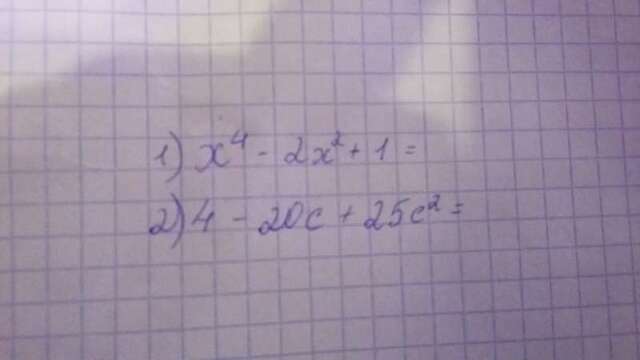 1) x⁴ - 2x² + 1 =
2) 4 - 20c + 25c² =